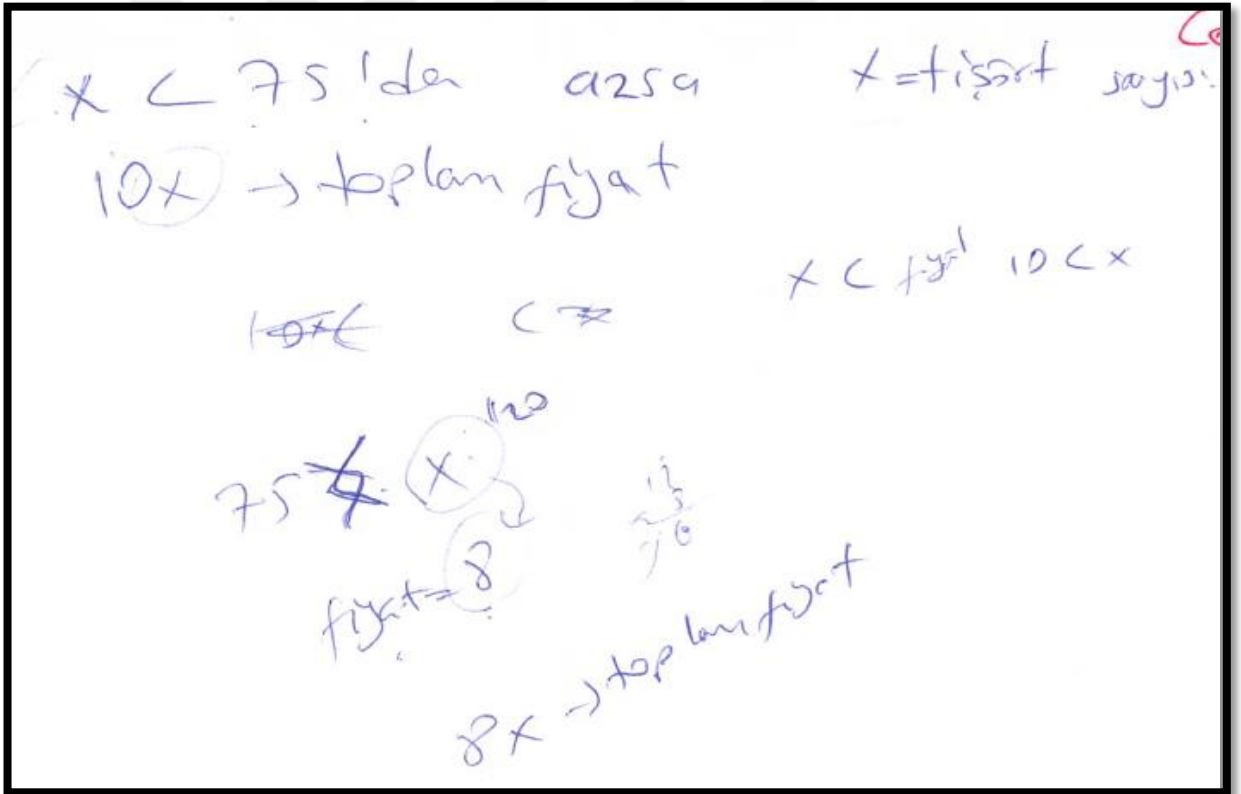 x < 75'den azsa
x = tişört sayısı
10x → toplam fiyat
x < fiyat 10 < x
10x <
< x
75 x 120
fiyat = 8
8x → toplam fiyat